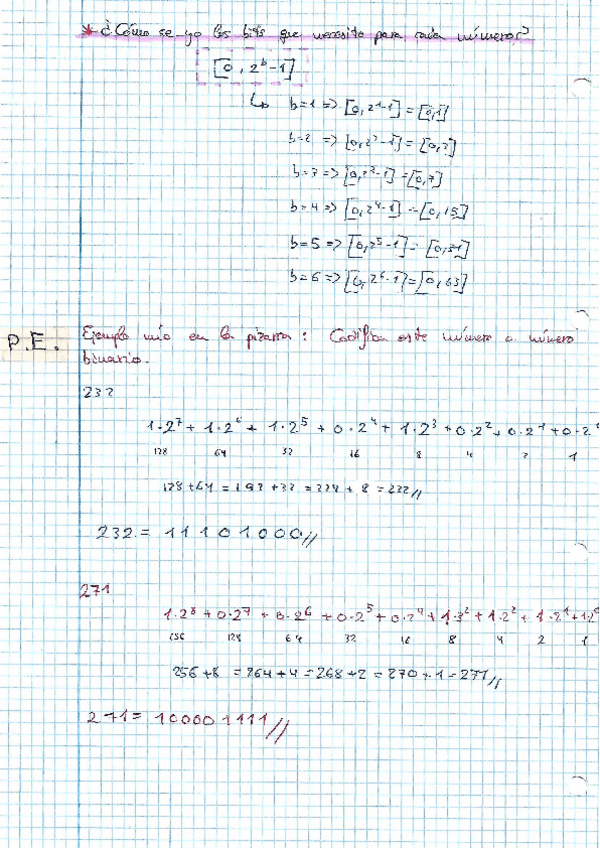 * ¿Cómo se yo los bits que necesito para cada número?
[0, 2ᵇ-1]
↳ b=1 => [0, 2¹-1] = [0,1]
b=2 => [0, 2²-1] = [0,3]
b=3 => [0, 2³-1] = [0,7]
b=4 => [0, 2⁴-1] = [0,15]
b=5 => [0, 2⁵-1] = [0,31]
b=6 => [0, 2⁶-1] = [0,63]
P.E. Ejemplo mío en la pizarra: Codifica este número a número
binario.
232
1·2⁷ + 1·2⁶ + 1·2⁵ + 0·2⁴ + 1·2³ + 0·2² + 0·2¹ + 0·2⁰
128 64 32 16 8 4 2 1
128+64 = 192+32 = 224 + 8 = 232//
232 = 11101000//
271
1·2⁸ + 0·2⁷ + 0·2⁶ + 0·2⁵ + 0·2⁴ + 1·3² + 1·2² + 1·2¹ + 1·2⁰
256 128 64 32 16 8 4 2 1
256+8 = 264+4 = 268+2 = 270+1 = 271//
271 = 100001111//